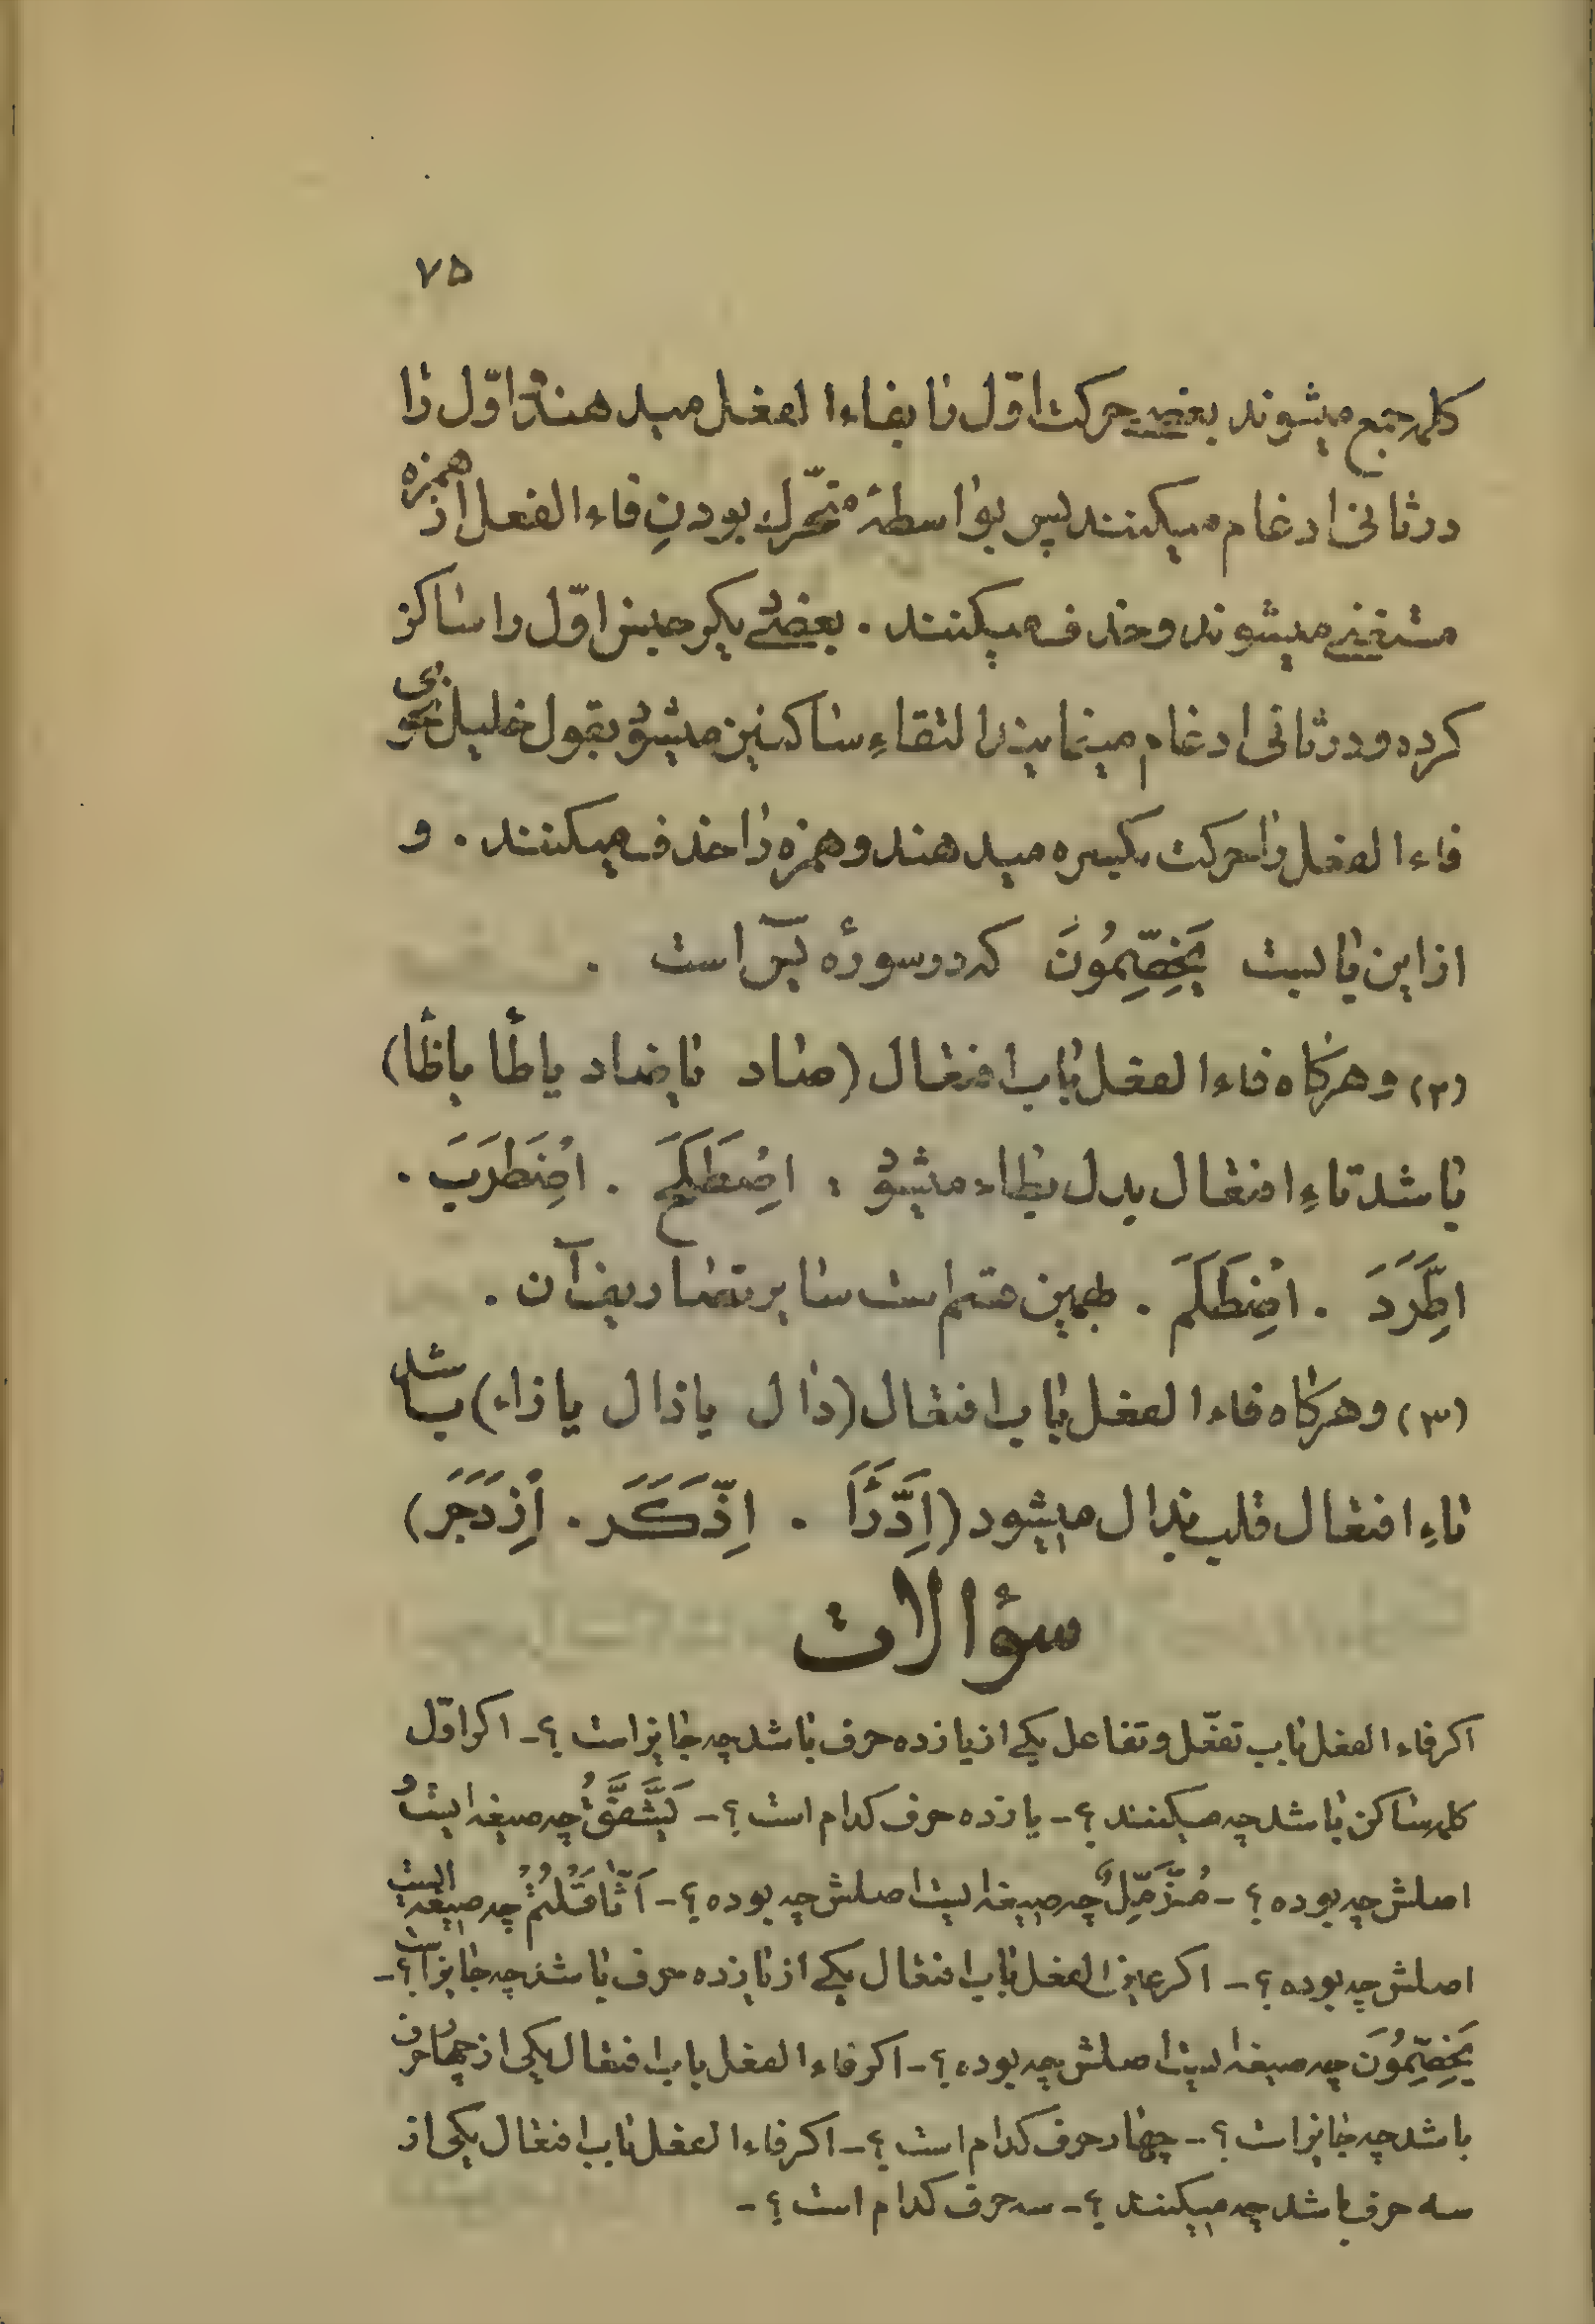 ۷۵
کلمه جمع میشوند بعضی حرکت اوّل را بفاء الفعل میدهند اوّل را
در ثانی ادغام میکنند پس بواسطهٔ متحّرك بودنِ فاء الفعل از همزه
مستغنی میشوند و حذف میکنند . بعضی دیگر جنس اوّل را ساکن
کرده و در ثانی ادغام مینمایند التقاءِ ساکنین میشود بقول خلیل نحوی
فاء الفعل را حرکت بکسره میدهند و همزه را حذف میکنند . و
از این بابست يَخِصِّمُونَ که در سورهٔ یسٓ است .
(۲) و هرگاه فاء الفعل باب افتعال (صاد یا ضاد یا طا یا ظا)
باشد تاءِ افتعال بدل بطاء میشود : اصْطَلَحَ . اضْطَرَبَ .
اطَّرَدَ . اضْطَلَمَ . بهمین قسم است سایر تصاریف آن .
(۳) و هرگاه فاء الفعل باب افتعال (دال یا ذال یا زاء) باشد
تاءِ افتعال قلب بدال میشود (اِدَّرَأَ . اِذَّكَرَ . اِزْدَجَرَ)
سؤالات
اگر فاء الفعل باب تفعّل و تفاعل یکی از یازده حرف باشد چه جایز است ؟ - اگر اوّل
کلمه ساکن باشد چه میکنند ؟ - یازده حرف کدام است ؟ - يَشَّقَّقُ چه صیغه ایست و
اصلش چه بوده ؟ - مُزَّمِّلٌ چه صیغه ایست اصلش چه بوده ؟ - اثَّاقَلْتُمْ چه صیغه ایست
اصلش چه بوده ؟ - اگر عین الفعل باب افتعال یکی از یازده حرف باشد چه جایز است ؟ -
يَخِصِّمُونَ چه صیغه ایست اصلش چه بوده ؟ - اگر فاء الفعل باب افتعال یکی از چهار حرف
باشد چه جایز است ؟ - چهار حرف کدام است ؟ - اگر فاء الفعل باب افتعال یکی از
سه حرف باشد چه میکنند ؟ - سه حرف کدام است ؟ -